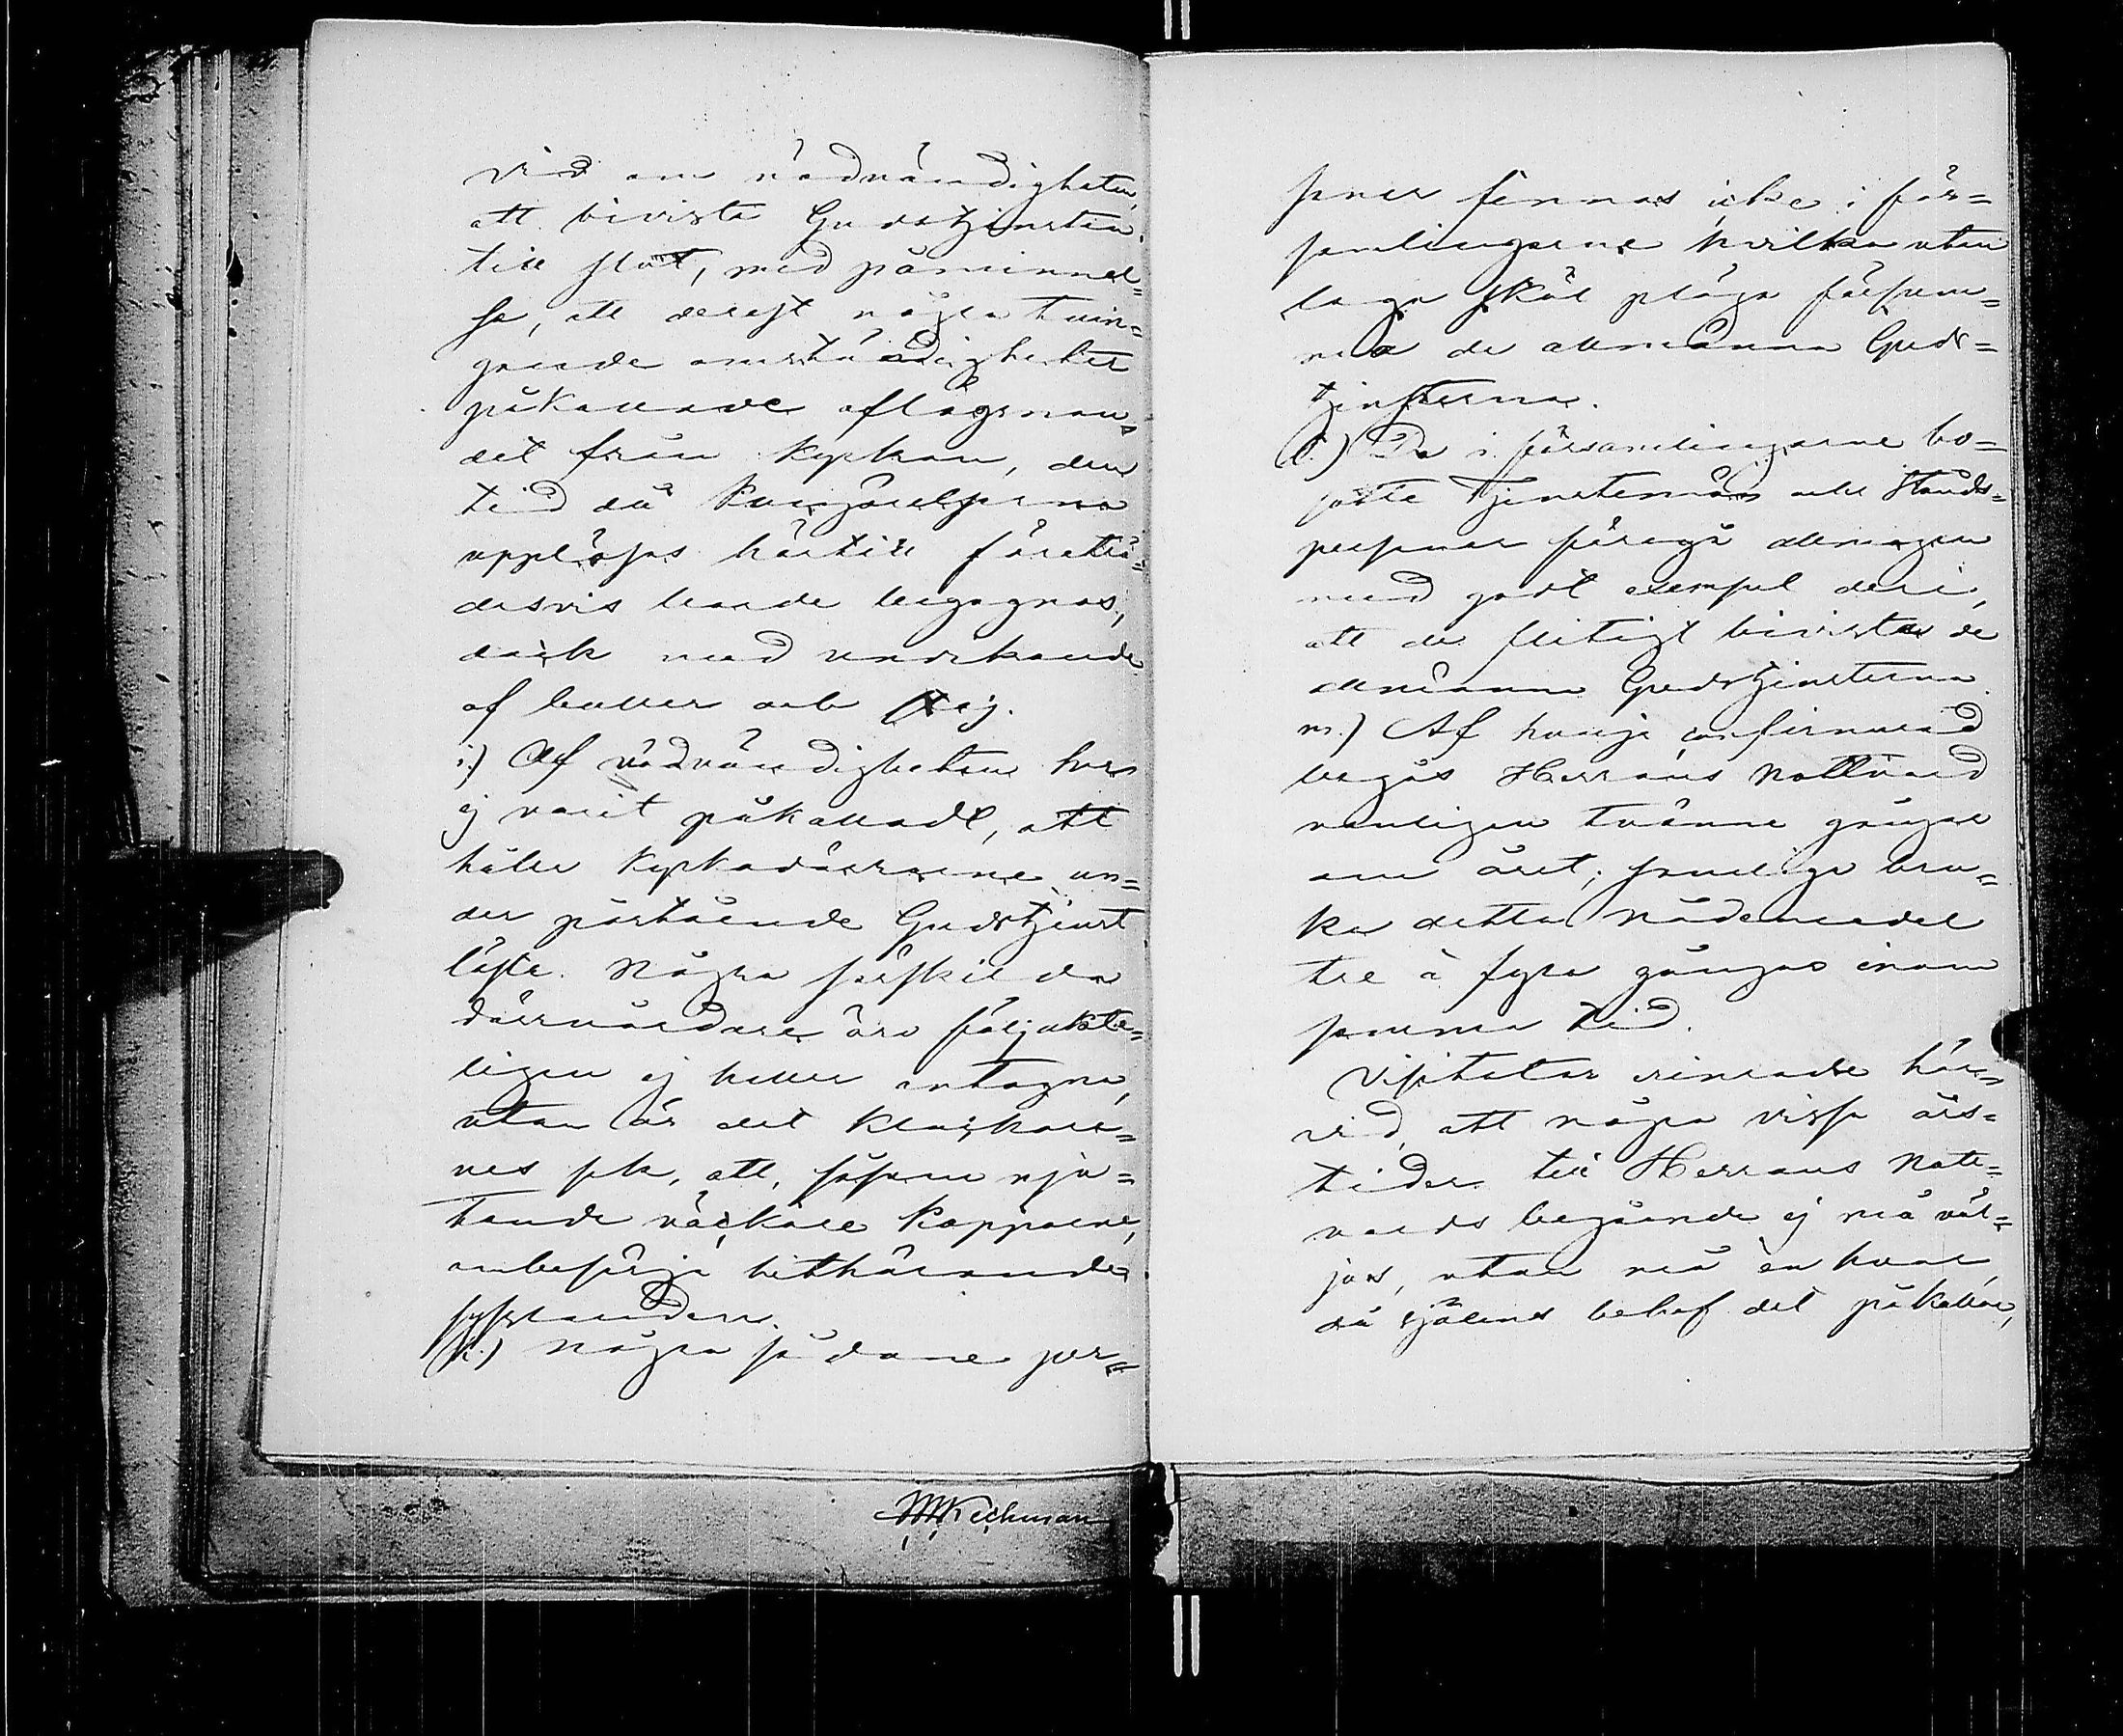 vid om nödvändigheten,
att bivista Gudstjensten
till slut, med påminnel-
se, att derest några tvin-
gande omständigheter
påkallade aflägsnan-
det från kyrkan, den
tid då kungörelserna
uppläsas härtill företrä-
desvis borde begagnas,
dock med undvikande
af buller och
i.) Af nödvändigheten har
ej varit påkalladt, att
hålla kyrkodörrarne un-
der påstående Gudstjenst
låste. Några särskilda
dörrvårdare äro följakte-
ligen ej heller antagne,
utan är det klockare-
nes sak, att, såsom nju-
tande väckare kappane,
ombesörja hithörande
k.) Några sådane per-
soner finnas icke i för-
samlingarne hvilka utan
laga skäl pläga försum-
ma de allmänna Guds-
tjensterna.
l.) De i församlingarne bo-
satte Tjenstemän och Stånds-
personer föregå allmogen
med godt exempel deri,
att de flitigt bivista de
allmänna Gudstjensterna.
m.) Af hvarje confirmerad
begås Herrans Nattvard
vanligen tvänne gånger
om året; somliga bru-
ka detta Nådemedel
tre à fyra gånger inom
samma tid.
Visitator erinrade här-
vid, att några vissa års-
tider till Herrans Natt-
vards begående ej må väl-
jas, utan må en hvar,
då själens behof det påkallar,